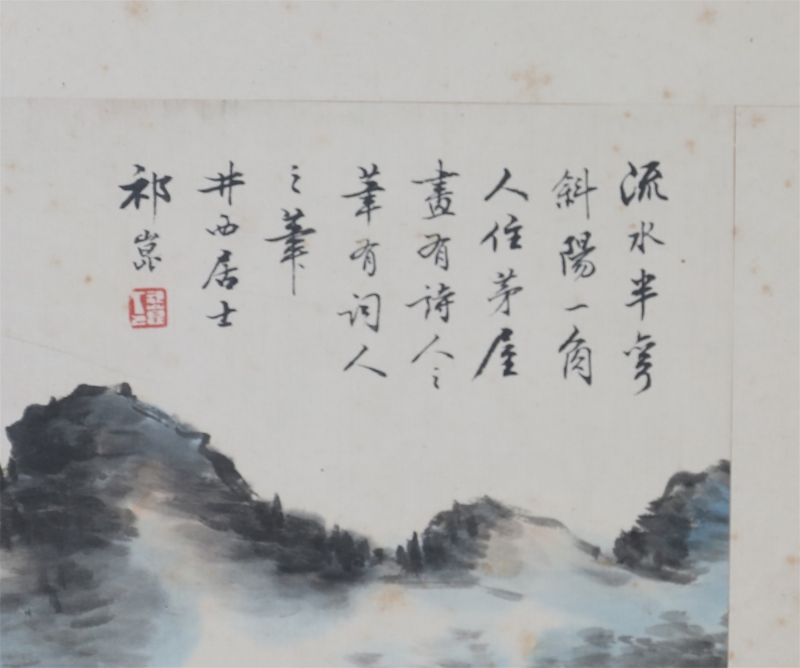 流水半彎
斜陽一角
人住茅屋
畫有詩人之
筆有詞人
之筆
井西居士
祁崑